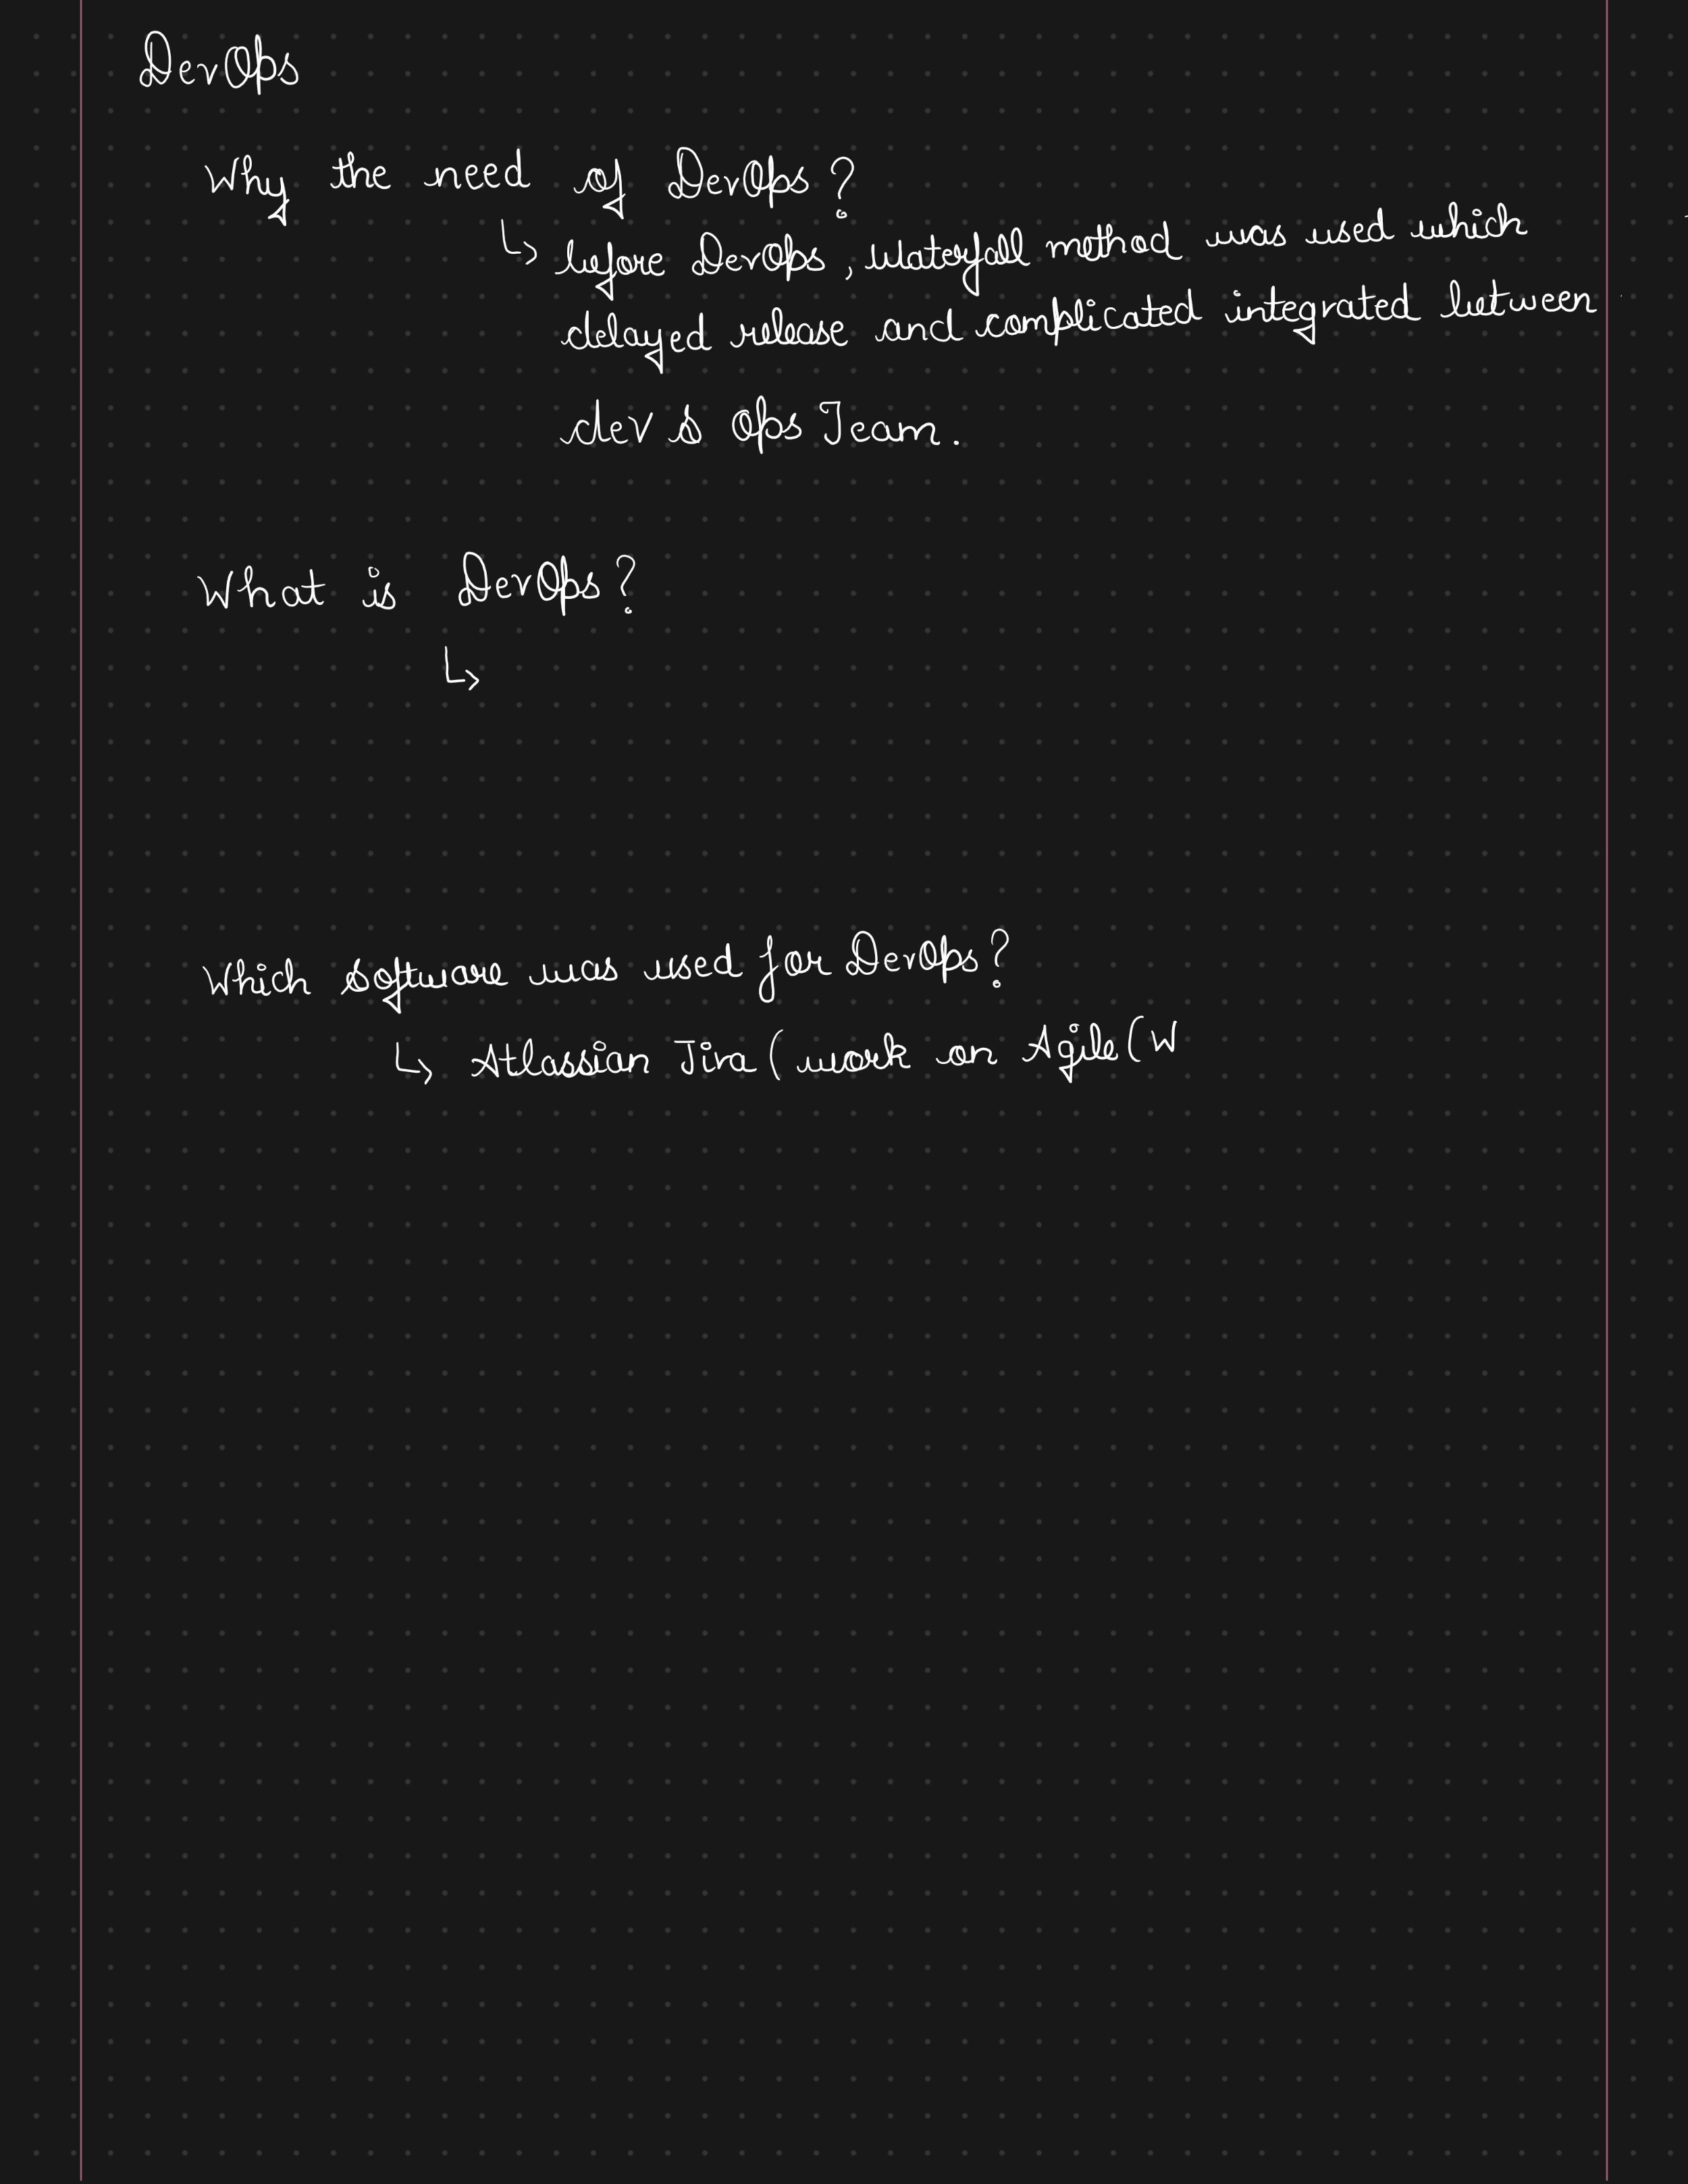 DevOps
Why the need of DevOps?
↳ before DevOps, Waterfall method was used which
delayed release and complicated integrated between
dev & Ops Team.
What is DevOps?
↳
Which software was used for DevOps?
↳ Atlassian Jira (work on Agile (W